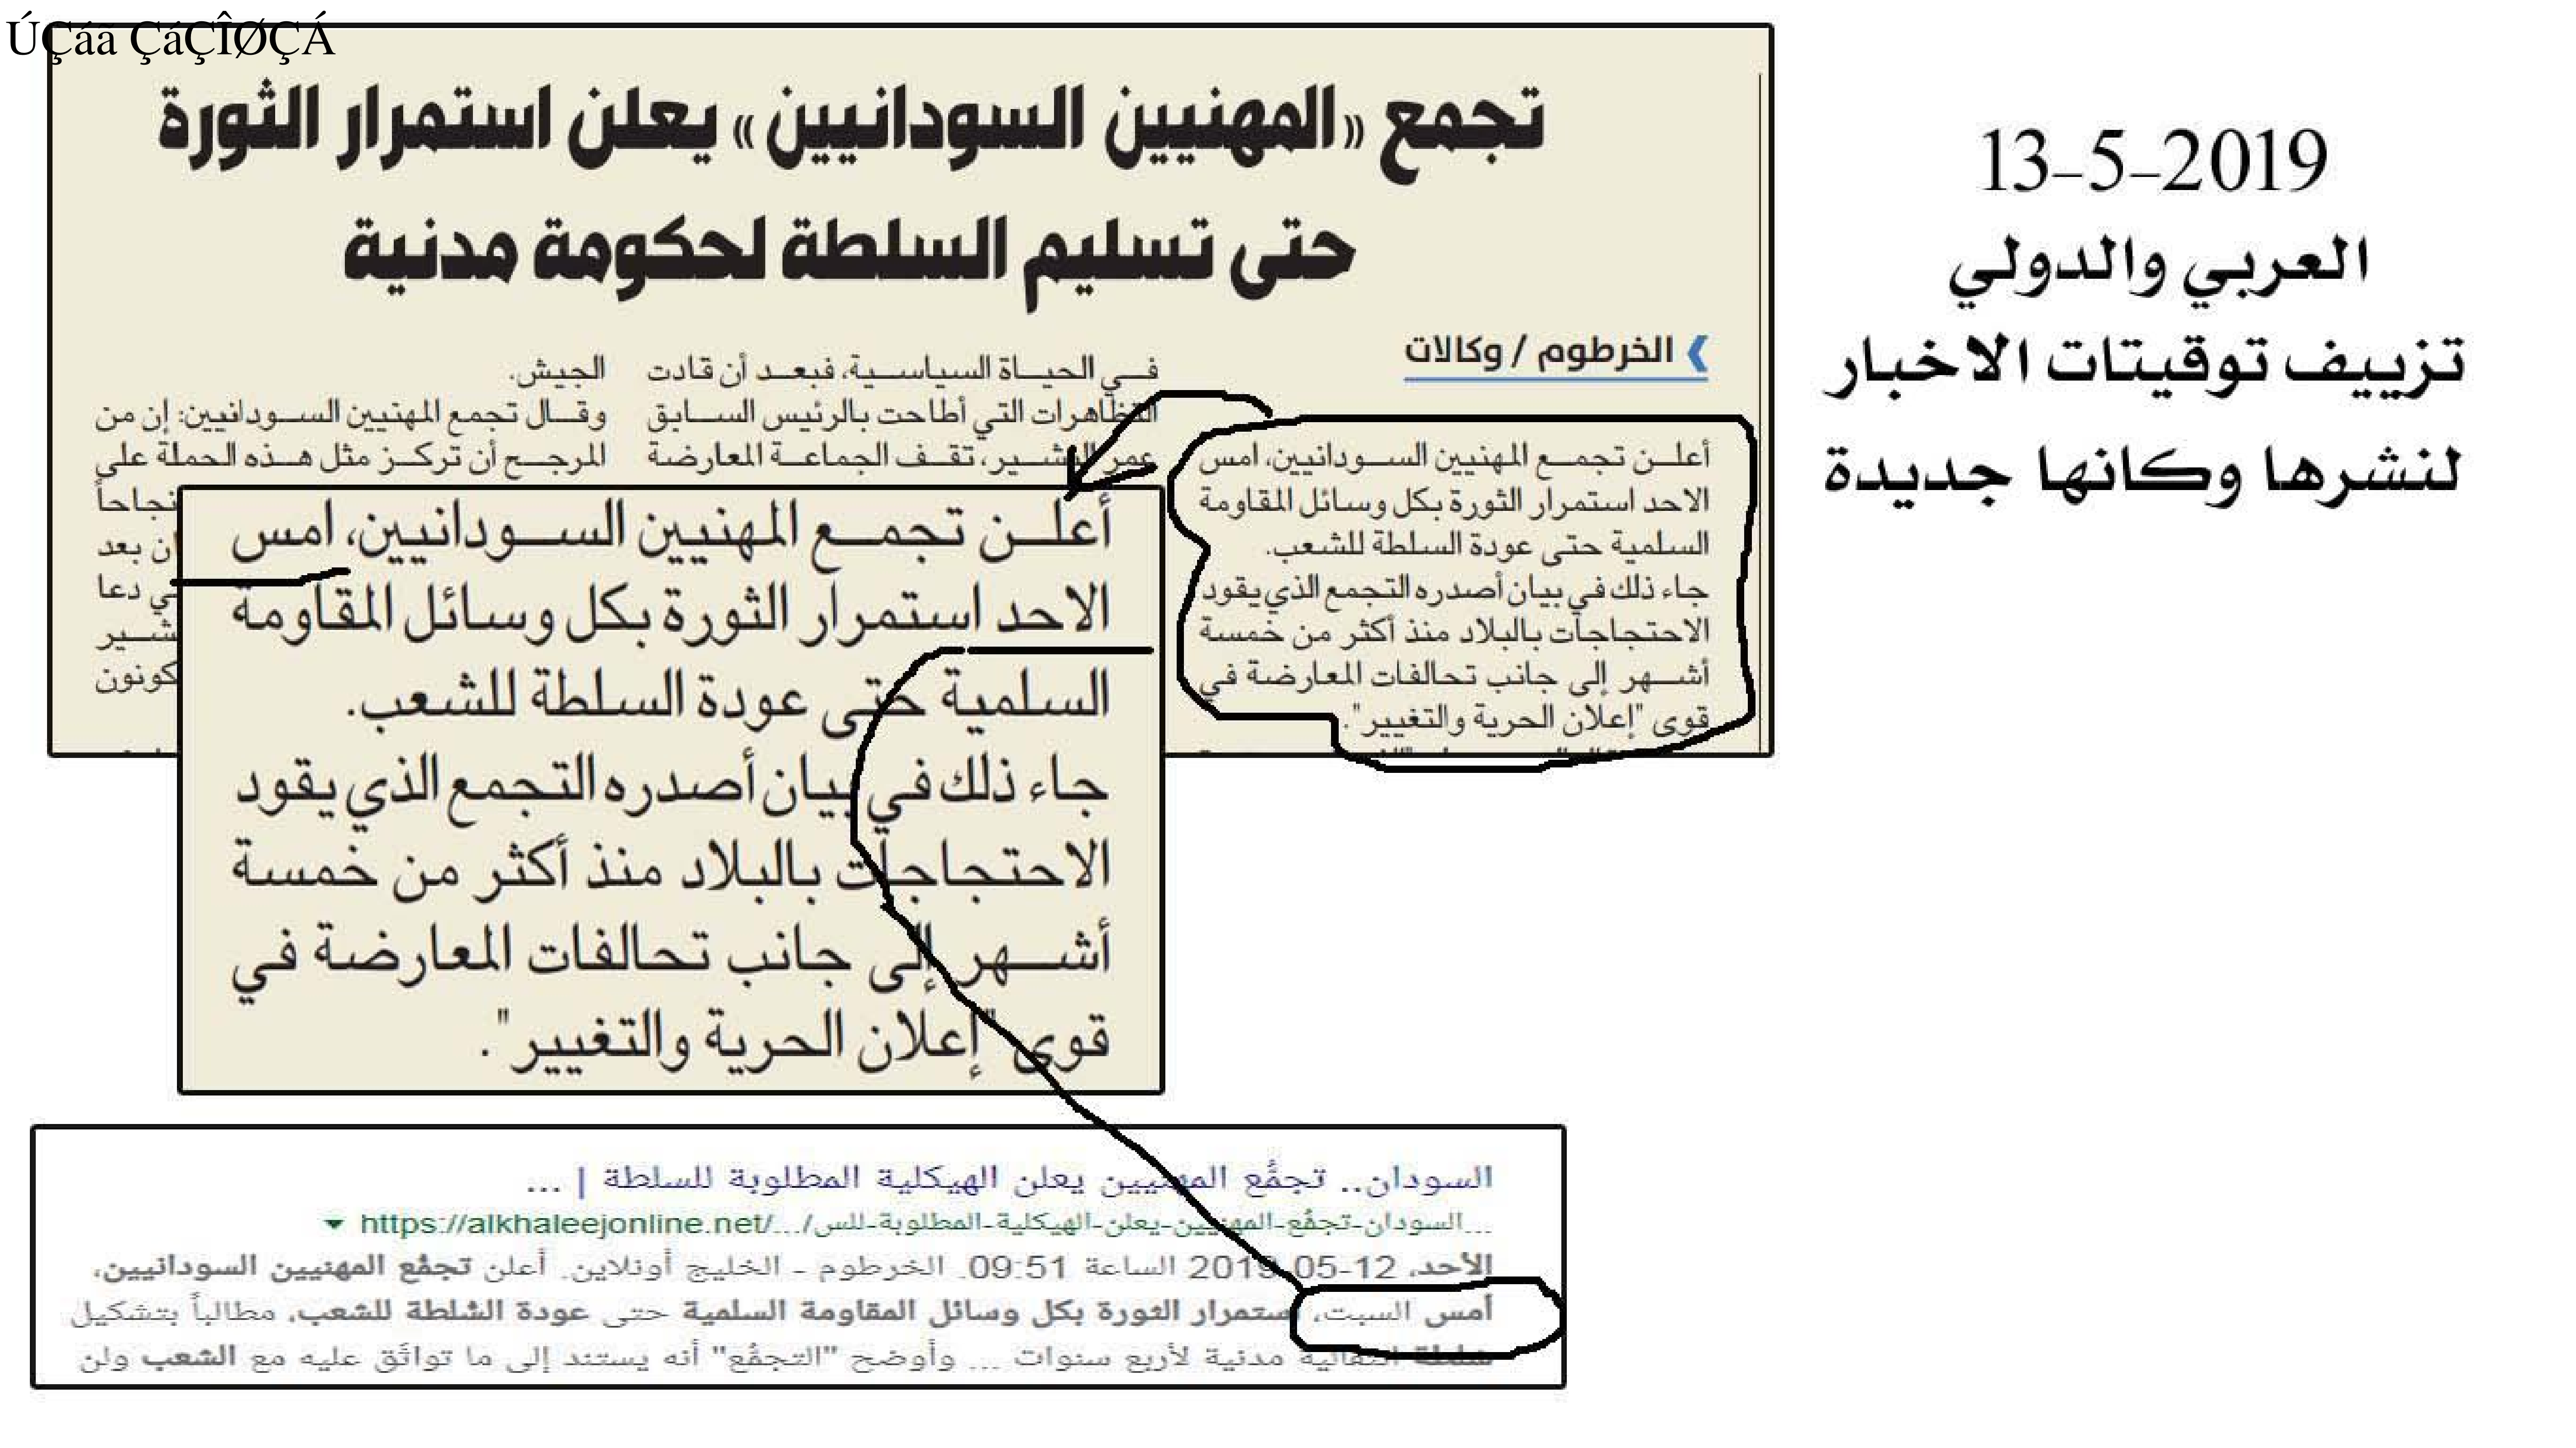 ÚÇáã ÇáÇÎØÇÁ
13-5-2019
العربي والدولي
تزييف توقيتات الاخبار
لنشرها وكانها جديدة
تجمع «المهنيين السودانيين» يعلن استمرار الثورة
حتى تسليم السلطة لحكومة مدنية
الخرطوم / وكالات
أعلن تجمع المهنيين السودانيين، امس
الاحد استمرار الثورة بكل وسائل المقاومة
السلمية حتى عودة السلطة للشعب.
جاء ذلك في بيان أصدره التجمع الذي يقود
الاحتجاجات بالبلاد منذ أكثر من خمسة
أشهر إلى جانب تحالفات المعارضة في
قوى "إعلان الحرية والتغيير".
في الحياة السياسية، فبعد أن قادت
التظاهرات التي أطاحت بالرئيس السابق
عمر البشير، تقف الجماعة المعارضة
الجيش.
وقال تجمع المهنيين السودانيين: إن من
المرجح أن تركز مثل هذه الحملة على
نجاحاً
ن بعد
ي دعا
شير
كونون
أعلن تجمع المهنيين السودانيين، امس
الاحد استمرار الثورة بكل وسائل المقاومة
السلمية حتى عودة السلطة للشعب.
جاء ذلك في بيان أصدره التجمع الذي يقود
الاحتجاجات بالبلاد منذ أكثر من خمسة
أشهر إلى جانب تحالفات المعارضة في
قوى "إعلان الحرية والتغيير".
السودان.. تجمُّع المهنيين يعلن الهيكلية المطلوبة للسلطة | ...
https://alkhaleejonline.net/.../السودان-تجمُّع-المهنيين-يعلن-الهيكلية-المطلوبة-للس...
الأحد، 12-05-2019 الساعة 09:51. الخرطوم - الخليج أونلاين. أعلن تجمُّع المهنيين السودانيين،
أمس السبت، استمرار الثورة بكل وسائل المقاومة السلمية حتى عودة السُّلطة للشعب، مطالباً بتشكيل
سلطة انتقالية مدنية لأربع سنوات ... وأوضح "التجمُّع" أنه يستند إلى ما توافَق عليه مع الشعب ولن